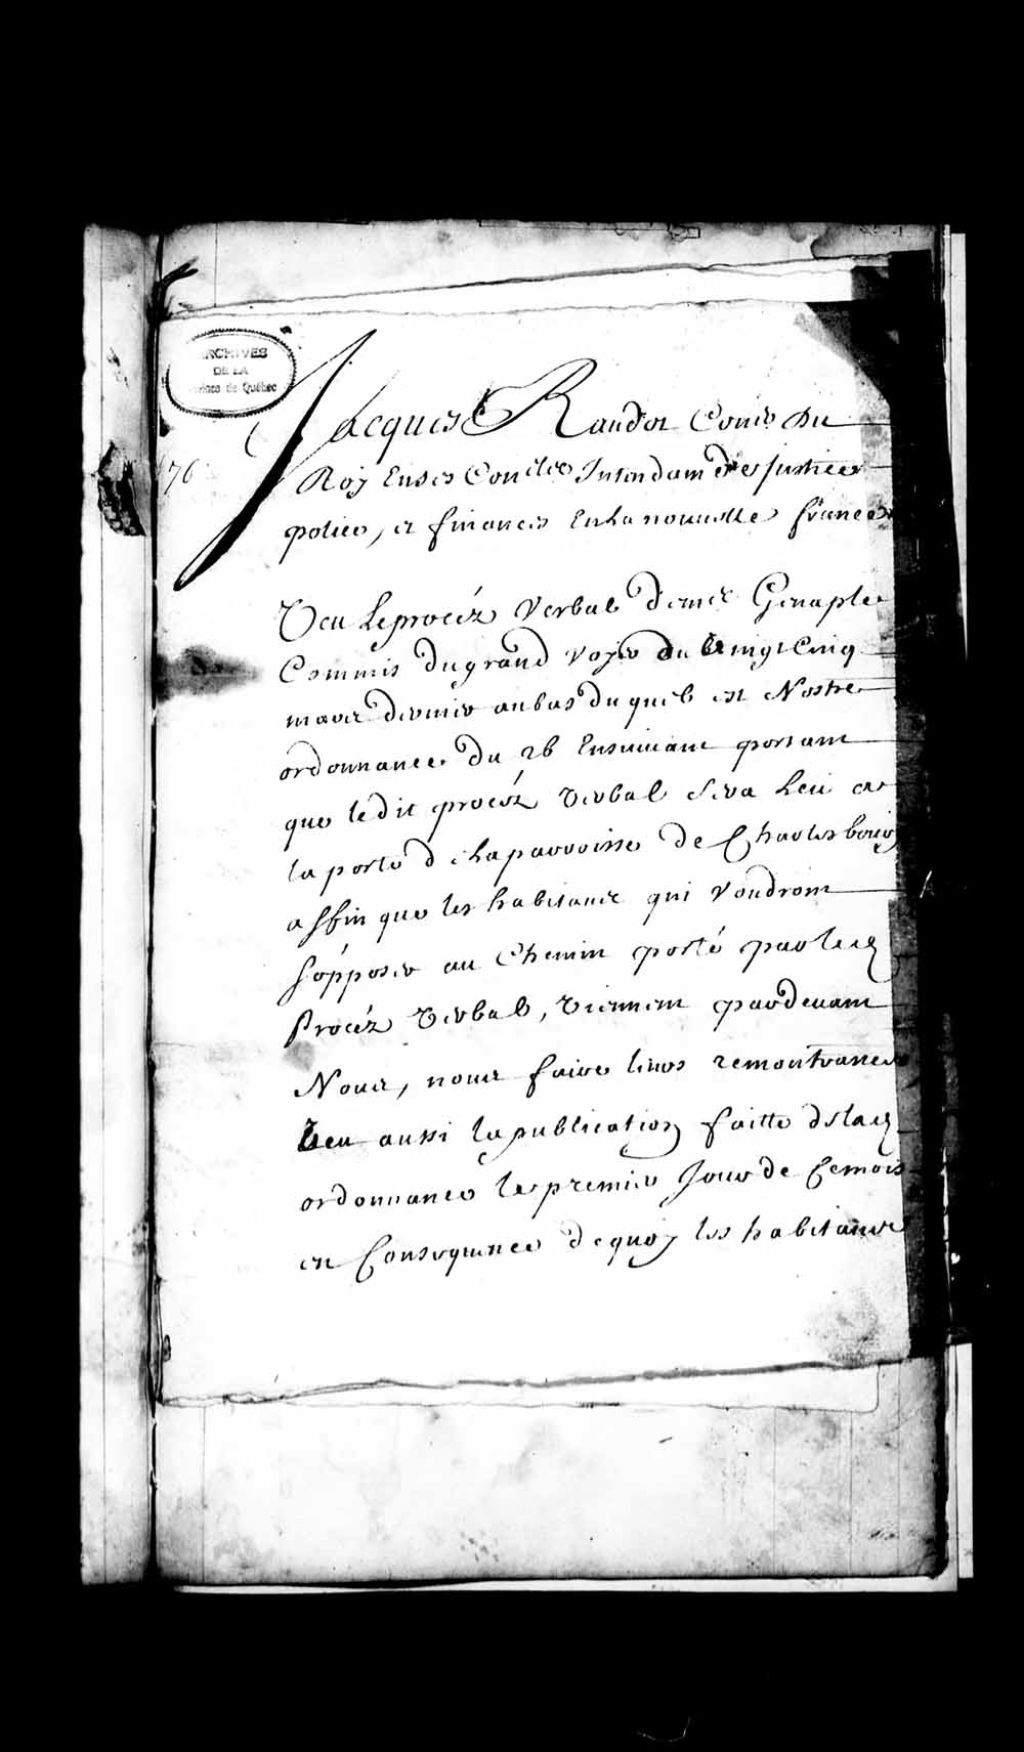 ARCHIVES
DE LA
de Québec
Jacques Raudot Con.er Du
76
Roy En ses Con.els Intendant de justice
police, et finances En la nouuelle france
Veu Le procéz Verbal de m.e Genaple
Commis du grand Voyer du Vingt Cinq
mars dernier au bas duquel est Nostre
ordonnance du 26 Ensuiuant portant
que le dit procéz Verbal sera Leu a
la porte de La parroisse de Charlesbourg
affin que les habitans qui Voudront
s'opposer au Chemin porté par led.
Procéz Verbal, Viennent pardeuant
Nous, nous faire leurs remontrances
Veu aussi la publication faitte de lad.
ordonnance le premier Jour de Ce mois
en Consequence de quoy les habitans